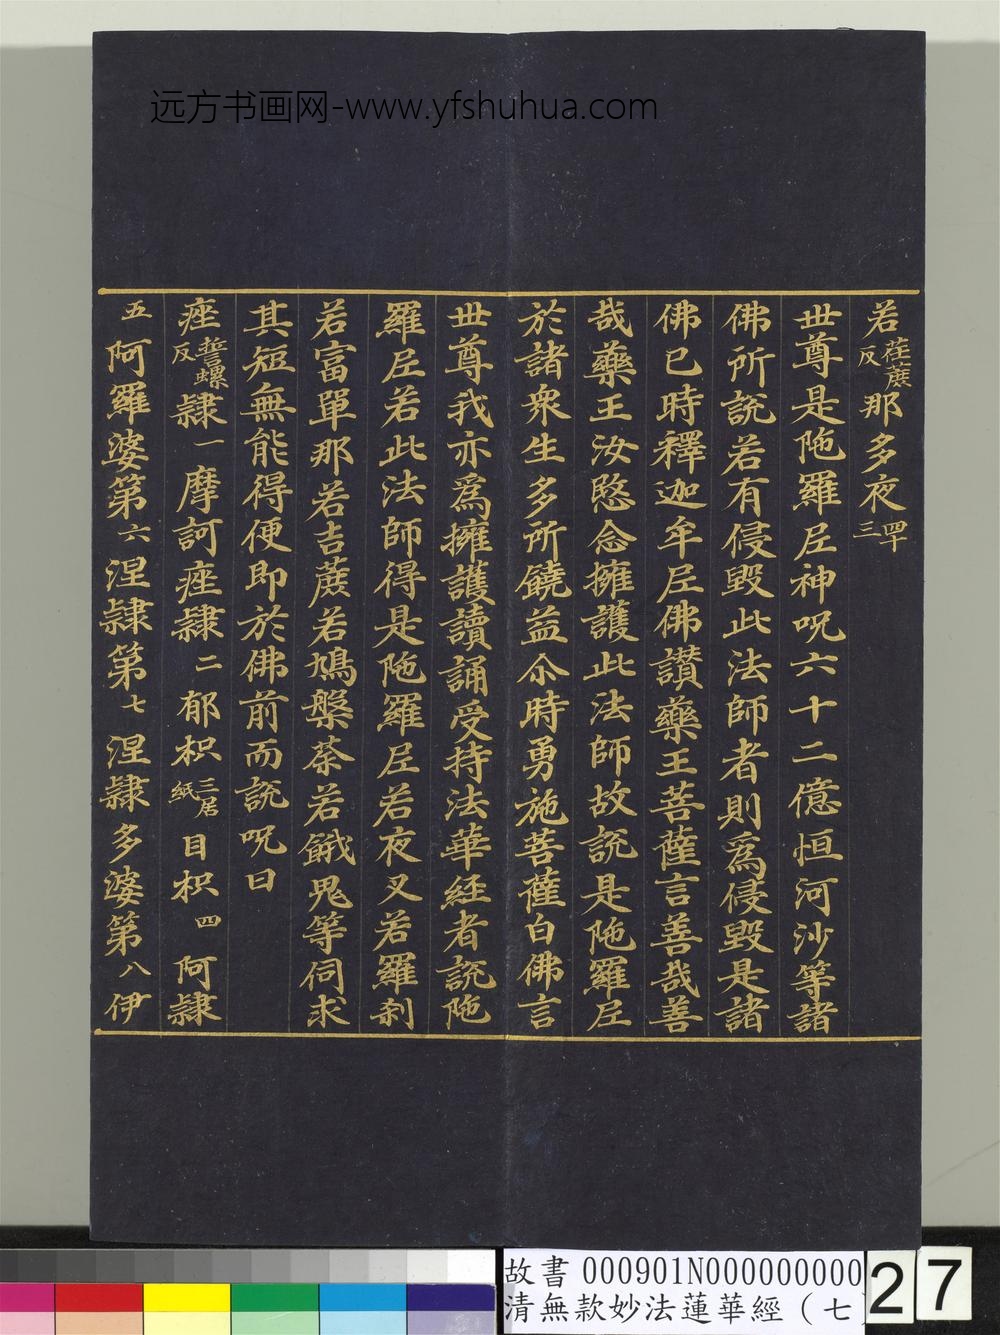 远方书画网-www.yfshuhua.com
若荏蔗反那多夜四十三
世尊是陁羅尼神呪六十二億恒河沙等諸
佛所說若有侵毀此法師者則爲侵毀是諸
佛已時釋迦牟尼佛讃藥王菩薩言善哉善
哉藥王汝愍念擁護此法師故説是陁羅尼
於諸衆生多所饒益尒時勇施菩薩白佛言
世尊我亦爲擁護讀誦受持法華経者説陁
羅尼若此法師得是陁羅尼若夜叉若羅刹
若富單那若吉蔗若鳩槃荼若餓鬼等伺求
其短無能得便即於佛前而説呪曰
痤誓螺反隷一摩訶痤隷二郁枳三居紙目枳四阿隷
五阿羅婆第六涅隷第七涅隷多婆第八伊
故書 000901N000000000
清無款妙法蓮華經（七）
27